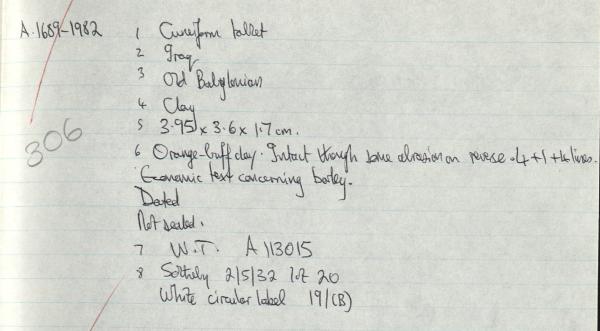 A.1689-1982 1 Cuneiform tablet
2 Iraq
3 Old Babylonian
4 Clay
5 3.95 x 3.6 x 1.7 cm.
306
6 Orange-buff clay. Intact though some abrasion on reverse. 4+1+4 lines.
Economic text concerning barley.
Dated
Not sealed.
7 W.T. A 113015
8 Sotheby 2/5/32 lot 20
White circular label 19/(B)